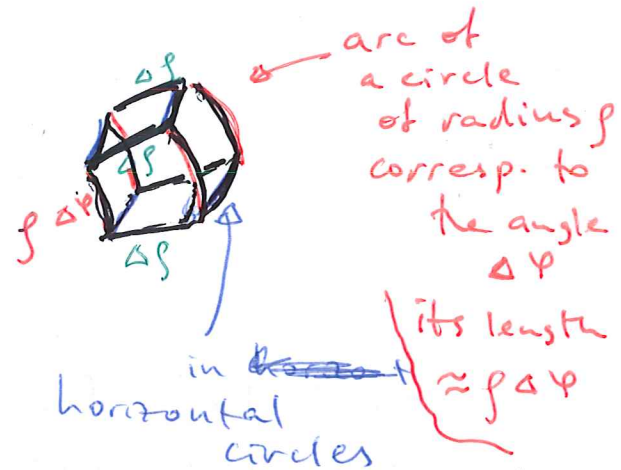 Δρ
Δρ
ρ Δφ
Δρ
arc of
a circle
of radius ρ
corresp. to
the angle
Δφ
its length
≈ ρ Δφ
in
horizontal
circles